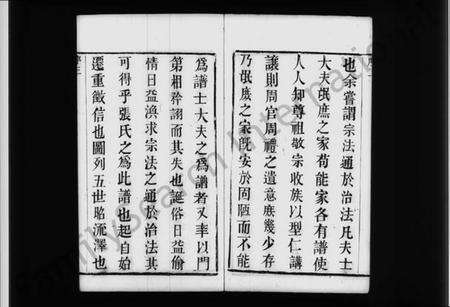 也余嘗謂宗法通於治法凡夫士
大夫氓庶之家苟能家各有譜使
人人知尊祖敬宗收族以型仁講
讓則周官周禮之遺意庶幾少存
乃氓庶之家旣安於固陋而不能
爲譜士大夫之爲譜者又率以門
第相矜詡而其失也誕俗日益偷
情日益渙求宗法之通於治法其
可得乎張氏之爲此譜也起自始
遷重徵信也圖列五世昭流澤也
FamilySearch International